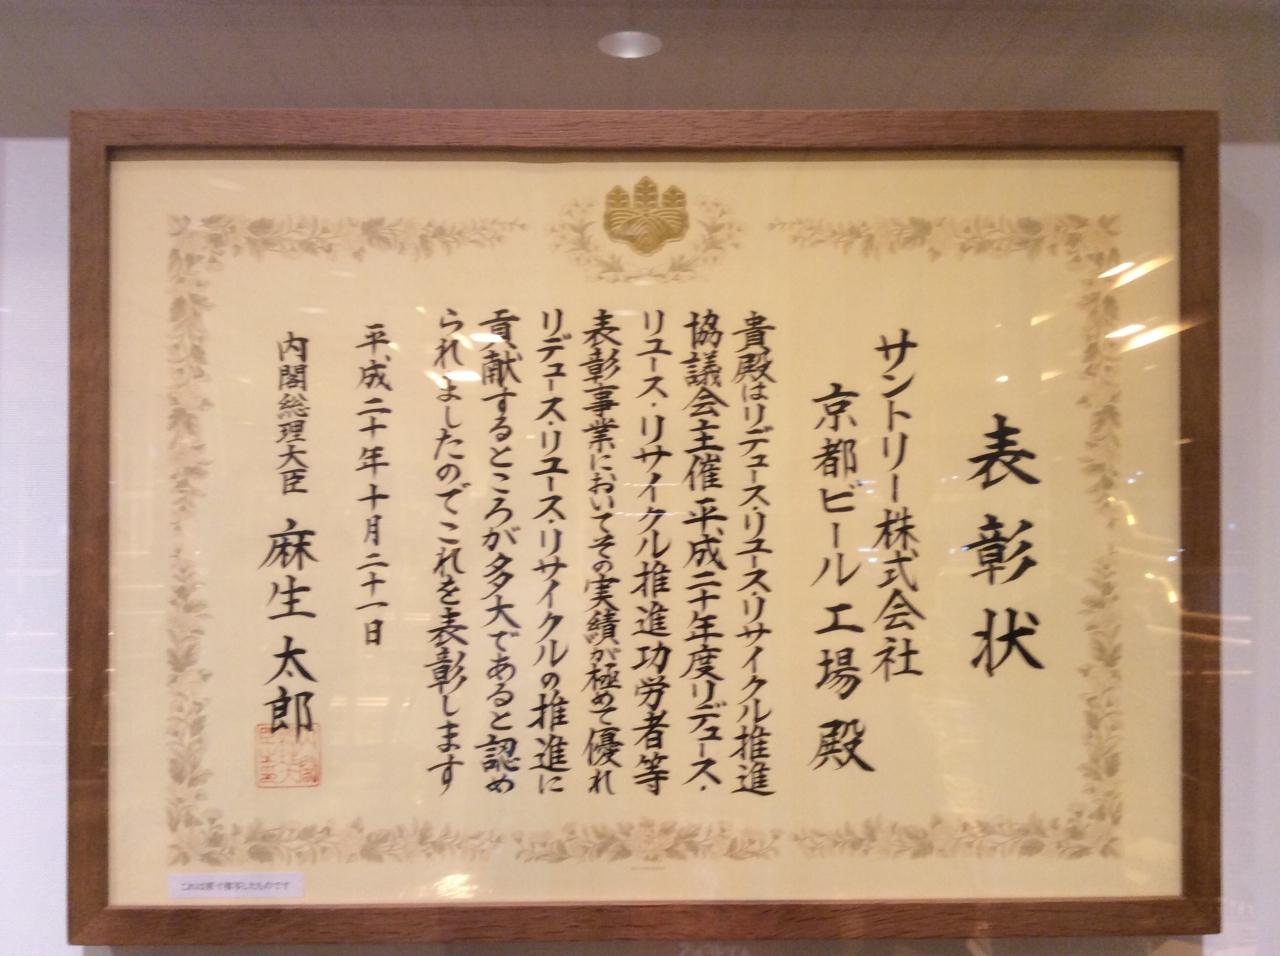 表彰状
サントリー株式会社
京都ビール工場殿
貴殿はリデュース・リユース・リサイクル推進
協議会主催平成二十年度リデュース・
リユース・リサイクル推進功労者等
表彰事業においてその実績が極めて優れ
リデュース・リユース・リサイクルの推進に
貢献するところが多大であると認め
られましたのでこれを表彰します
平成二十年十月二十一日
内閣総理大臣 麻生太郎